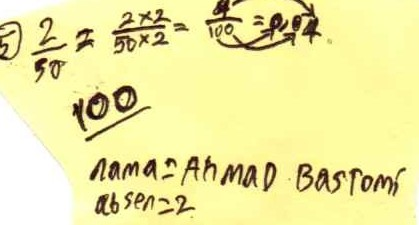 5) 2/50 = 2×2/50×2 = 4/100 = 0,04
100
nama = AHMAD BASTOMI
absen = 2